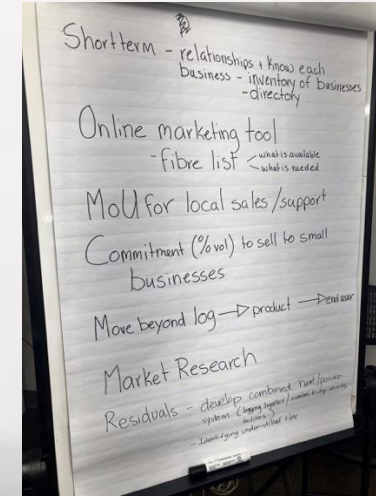 Short term - relationships + know each
business - inventory of businesses
- directory
Online marketing tool
- fibre list < what is available
what is needed
MoU for local sales/support
Commitment (% vol) to sell to small
businesses
Move beyond log → product → end user
Market Research
Residuals - develop combined heat/power
system (logging logistics/
- Identifying under-utilized fibre